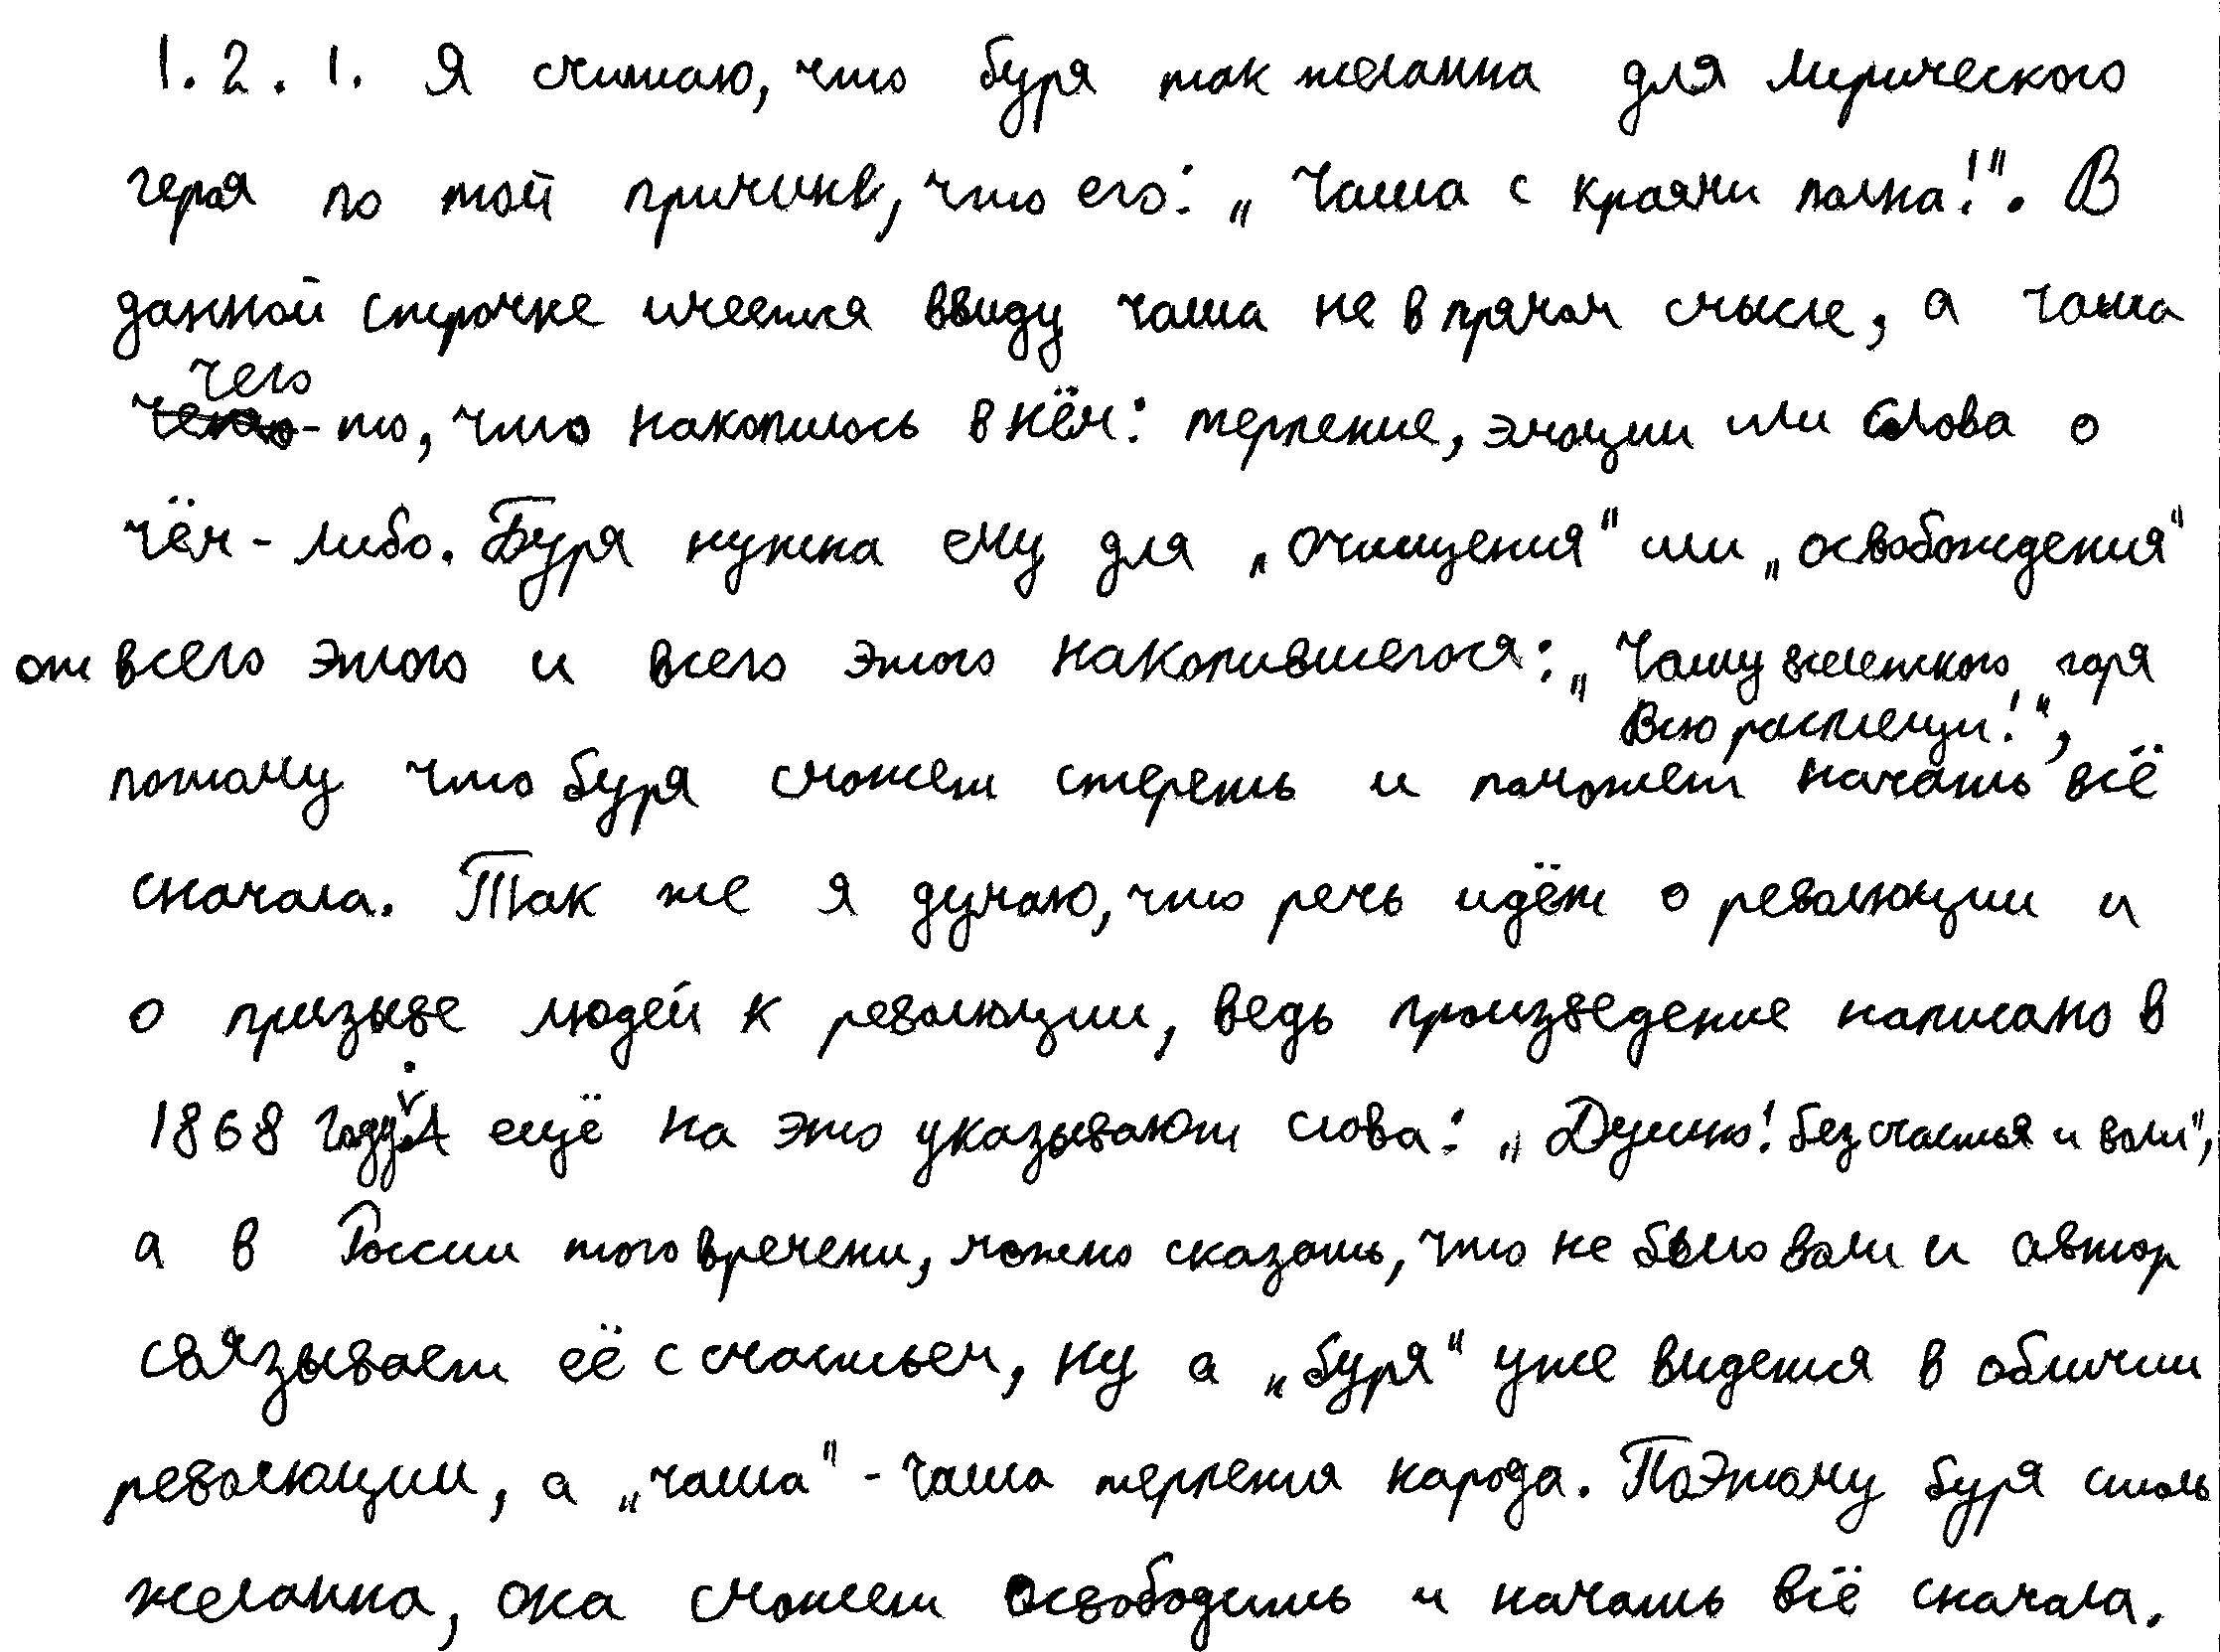 1.2.1. Я считаю, что буря так желанна для лирического
героя по той причине, что его: „Чаша с краями полна!". В
данной строчке имеется ввиду чаша не в прямом смысле, а чаша
чего
-то, что накопилось в нём: терпение, эмоции или слова о
чём-либо. Буря нужна ему для „очищения" или „освобождения"
от всего этого и всего этого накопившегося: „Чашу вселенского горя
Всю расплещи!",
потому что буря сможет стереть и поможет начать всё
сначала. Так же я думаю, что речь идёт о революции и
о призыве людей к революции, ведь произведение написано в
1868 году. А ещё на это указывают слова: „Душно! без счастья и воли",
а в России того времени, можно сказать, что не было воли и автор
связывает её с счастьем, ну а „буря" уже видется в обличии
революции, а „чаша" - чаша терпения народа. Поэтому буря столь
желанна, она сможет освободить и начать всё сначала.